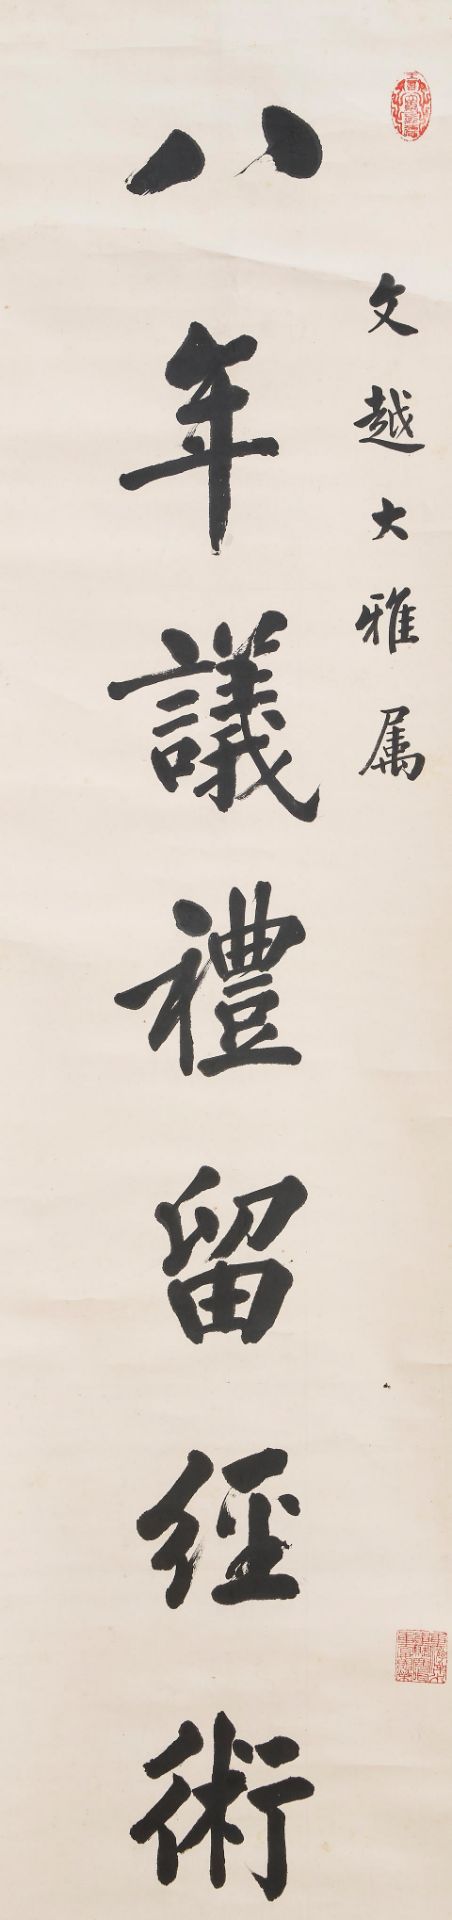 文越大雅属
八年議禮留經術